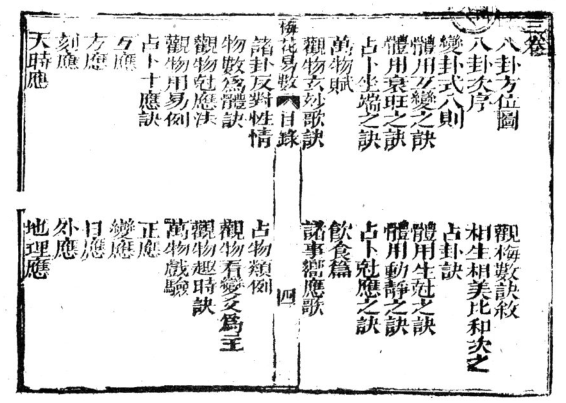 三卷
八卦方位圖　觀梅數訣敘
八卦次序　相生相美比和次之
變卦式八則　占卦訣
體用互變之訣　體用生尅之訣
體用衰旺之訣　體用動靜之訣
占卜坐端之訣　占卜尅應之訣
萬物賦　飲食篇
觀物玄妙歌訣　諸事嚮應歌
梅花易數　目錄　四
諸卦反對性情　占物類例
物數爲體訣　觀物看變爻爲主
觀物尅應法　觀物趣時訣
觀物用易例　萬物戲驗
占卜十應訣　正應
互應　變應
方應　日應
刻應　外應
天時應　地理應